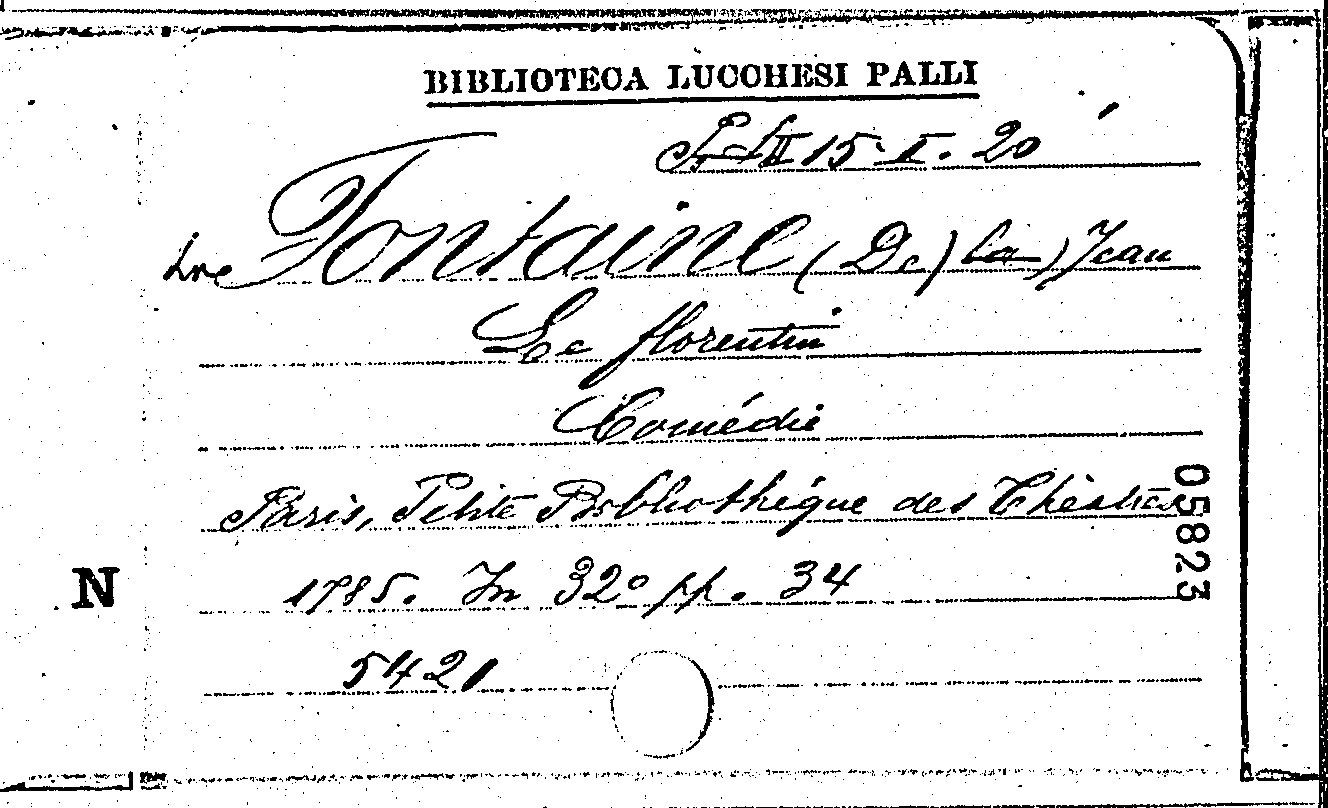 BIBLIOTECA LUCCHESI PALLI
15 I. 20
Fontaine (De) la) Jean
Le florentin
Comédie
Paris, Petite Bibliothéque des Théatres
1785. In 32º pp. 34
5421
N
05823